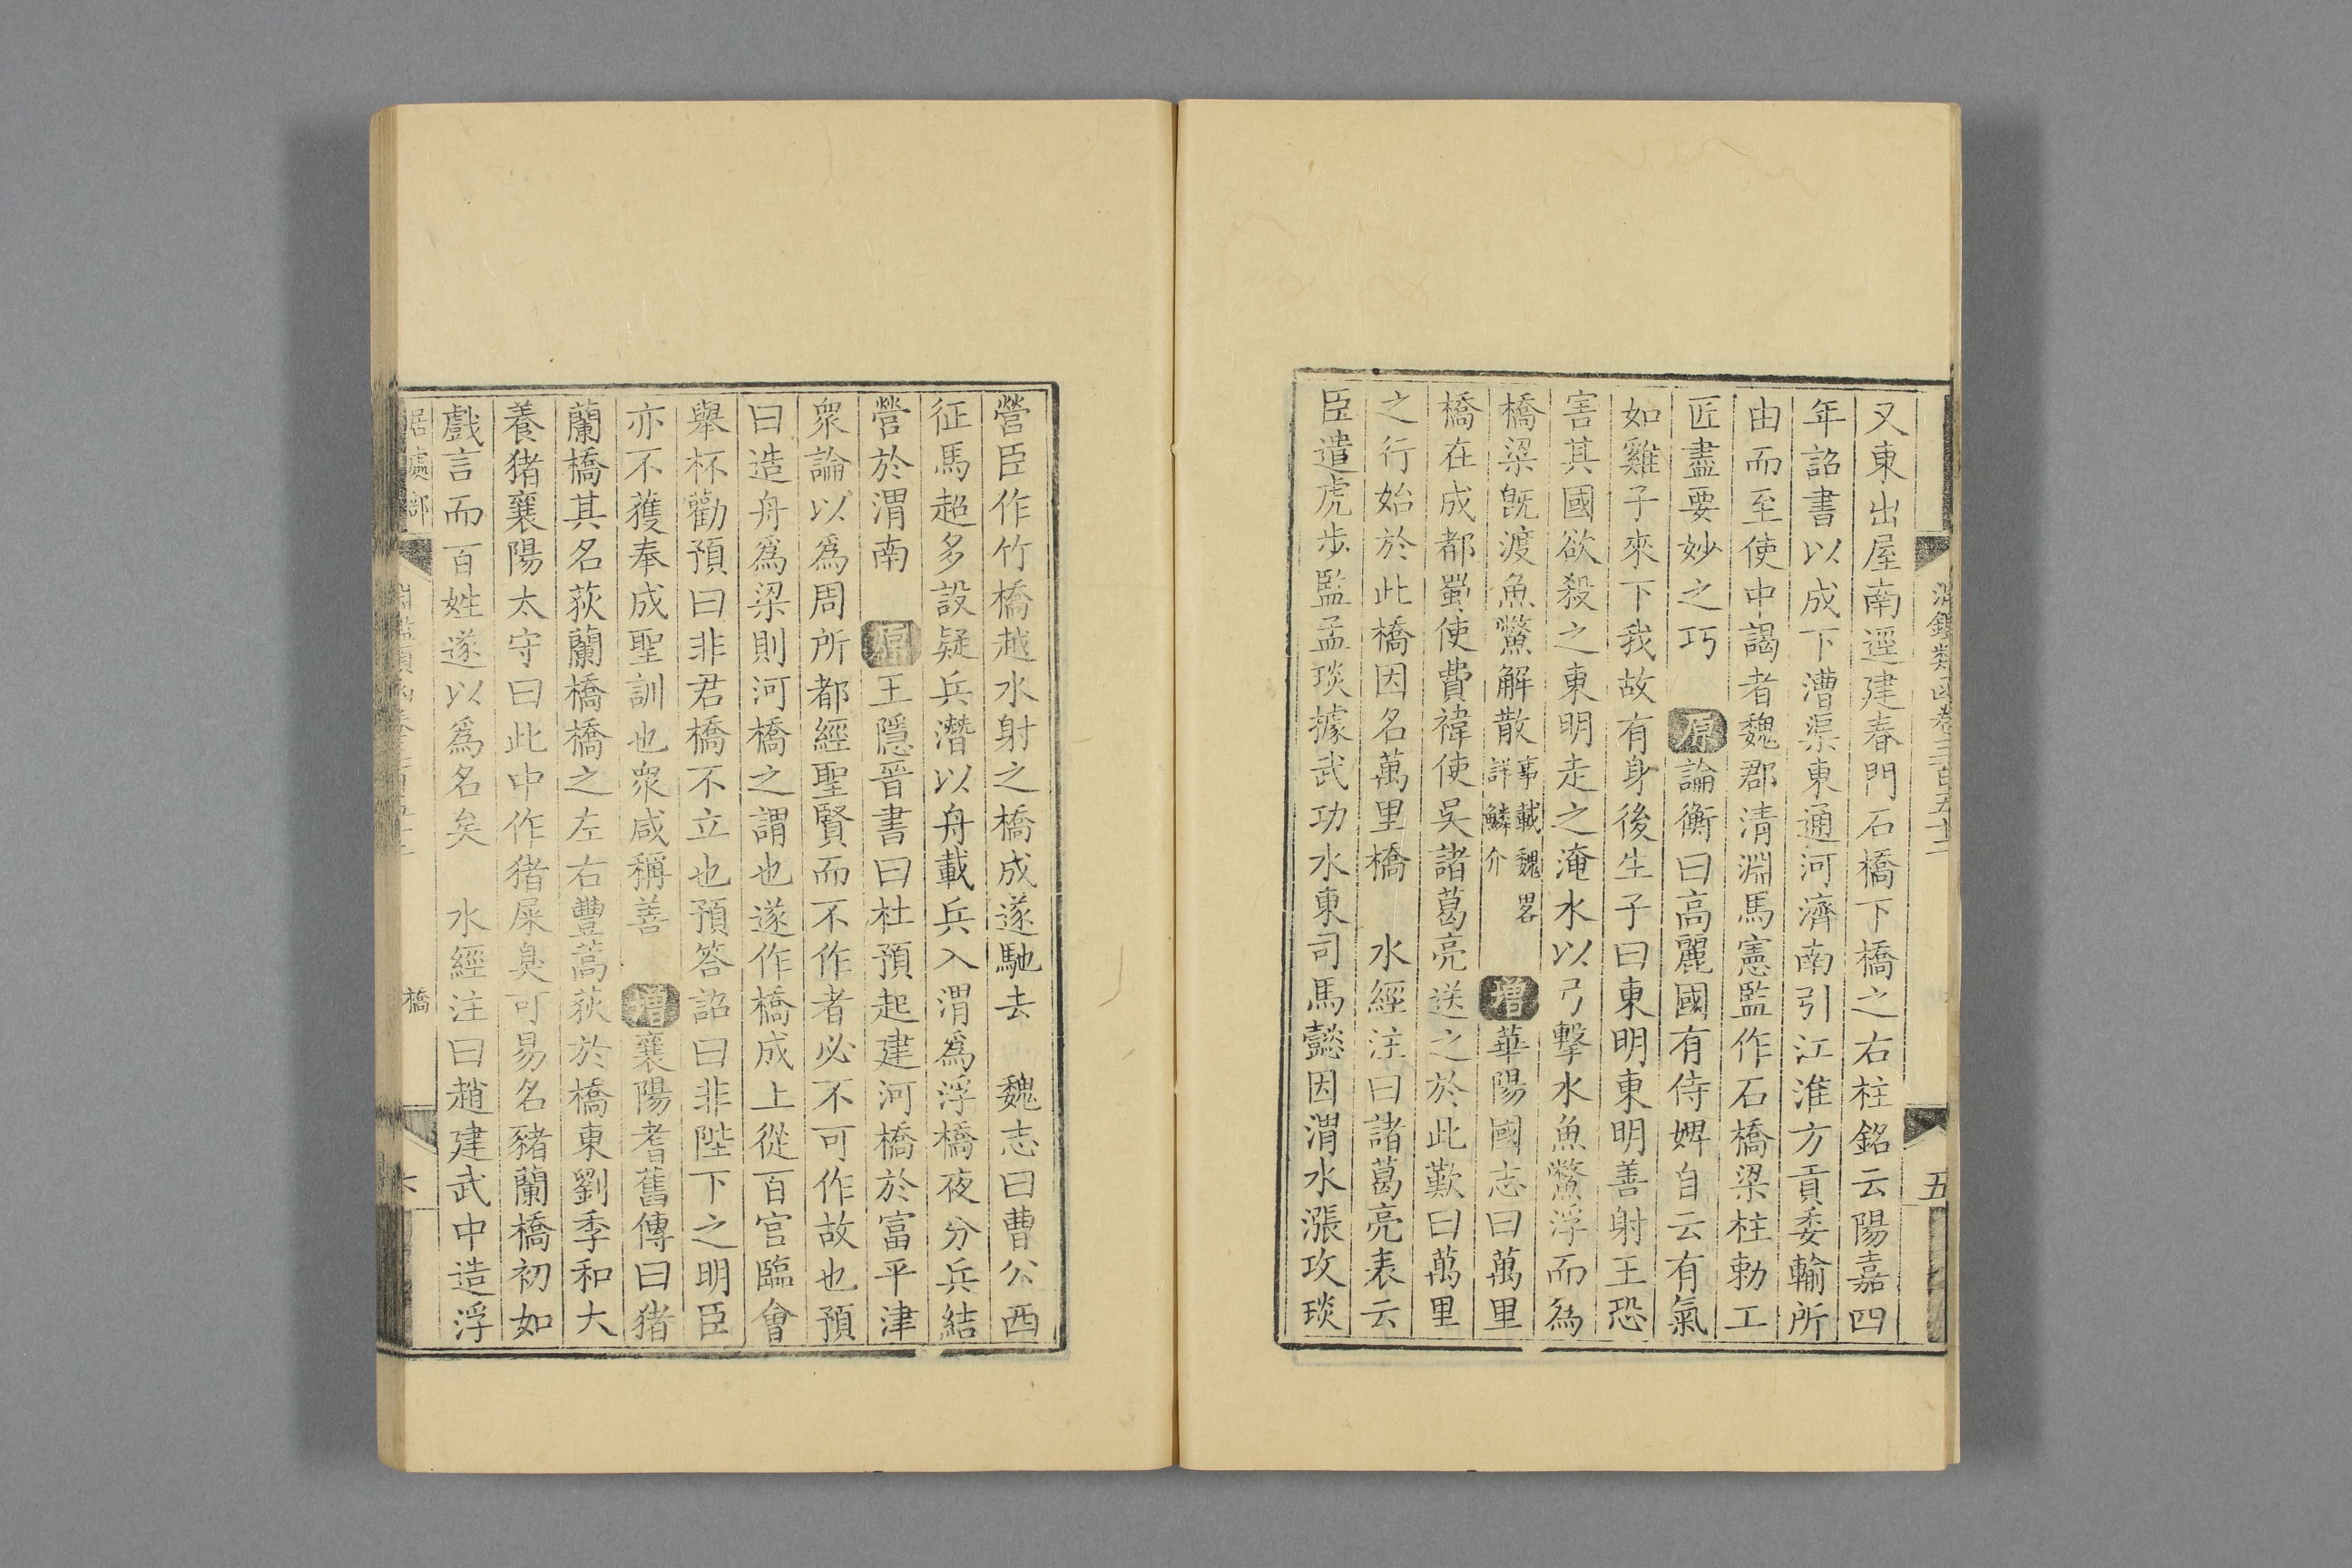 淵鑑類函卷三百五十二
五
又東出屋南逕建春門石橋下橋之右柱銘云陽嘉四
年詔書以成下漕渠東通河濟南引江淮方貢委輸所
由而至使中謁者魏郡清淵馬憲監作石橋梁柱勅工
匠盡要妙之巧 原論衡曰高麗國有侍婢自云有氣
如雞子來下我故有身後生子曰東明東明善射王恐
害其國欲殺之東明走之淹水以弓擊水魚鱉浮而為
橋梁旣渡魚鱉解散事載魏畧詳鱗介 增華陽國志曰萬里
橋在成都蜀使費禕使吳諸葛亮送之於此歎曰萬里
之行始於此橋因名萬里橋 水經注曰諸葛亮表云
臣遣虎步監孟琰據武功水東司馬懿因渭水漲攻琰
營臣作竹橋越水射之橋成遂馳去 魏志曰曹公西
征馬超多設疑兵潛以舟載兵入渭爲浮橋夜分兵結
營於渭南 原王隱晉書曰杜預起建河橋於富平津
衆論以爲周所都經聖賢而不作者必不可作故也預
曰造舟爲梁則河橋之謂也遂作橋成上從百官臨會
舉杯勸預曰非君橋不立也預答詔曰非陛下之明臣
亦不獲奉成聖訓也衆咸稱善 增襄陽耆舊傳曰猪
蘭橋其名荻蘭橋橋之左右豐蒿荻於橋東劉季和大
養猪襄陽太守曰此中作猪屎臭可易名豬蘭橋初如
戲言而百姓遂以爲名矣 水經注曰趙建武中造浮
居處部
橋
六